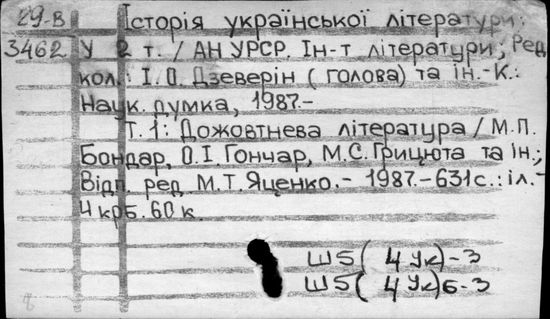 29-В Історія української літератури:
3462 У 2 т. / АН УРСР. Ін-т літератури; Ред.
кол.: І. О. Дзеверін (голова) та ін.-К.:
Наук. думка, 1987.-
Т. 1: Дожовтнева література / М.П.
Бондар, О.І. Гончар, М.С. Грицюта та ін.;
Відп. ред. М.Т. Яценко. - 1987. - 631 с.: іл.-
4 крб. 60 к.
Ш5(4Ук)-3
Ш5(4Ук)6-3